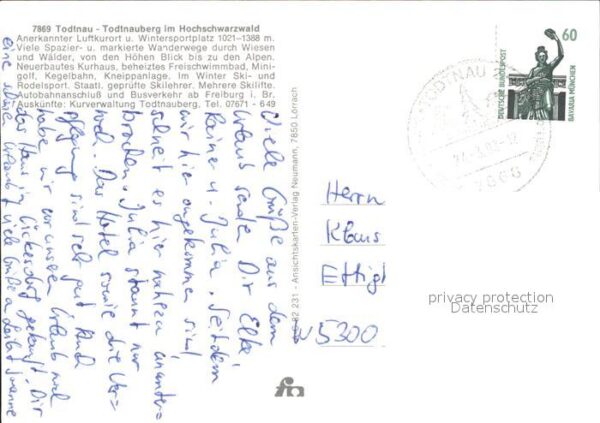 7869 Todtnau - Todtnauberg im Hochschwarzwald
Anerkannter Luftkurort u. Wintersportplatz 1021-1388 m.
Viele Spazier- u. markierte Wanderwege durch Wiesen
und Wälder, von den Höhen Blick bis zu den Alpen.
Neuerbautes Kurhaus, beheiztes Freischwimmbad, Mini-
golf, Kegelbahn, Kneippanlage. Im Winter Ski- und
Rodelsport. Staatl. geprüfte Skilehrer. Mehrere Skilifte.
Autobahnanschluß und Busverkehr ab Freiburg i. Br.
Auskünfte: Kurverwaltung Todtnauberg, Tel. 07671 - 649
Viele Grüße aus dem
Urlaub sende Dir Elke
Rainer u. Julia. Seitdem
wir hier angekommen sind
schneit es hier nahezu ununter-
brochen. Julia staunt nur
noch. Das Hotel sowie die Ver-
pflegung sind sehr gut. Auch
haben wir vor unserem Urlaub noch
das Haus in gekauft. Dir
eine schöne Viele Grüße
232 231 - Ansichtskarten-Verlag Neumann, 7850 Lörrach
Herrn
Klaus
W 5300
60
DEUTSCHE BUNDESPOST
BAVARIA MÜNCHEN
TODTNAU
privacy protection
Datenschutz